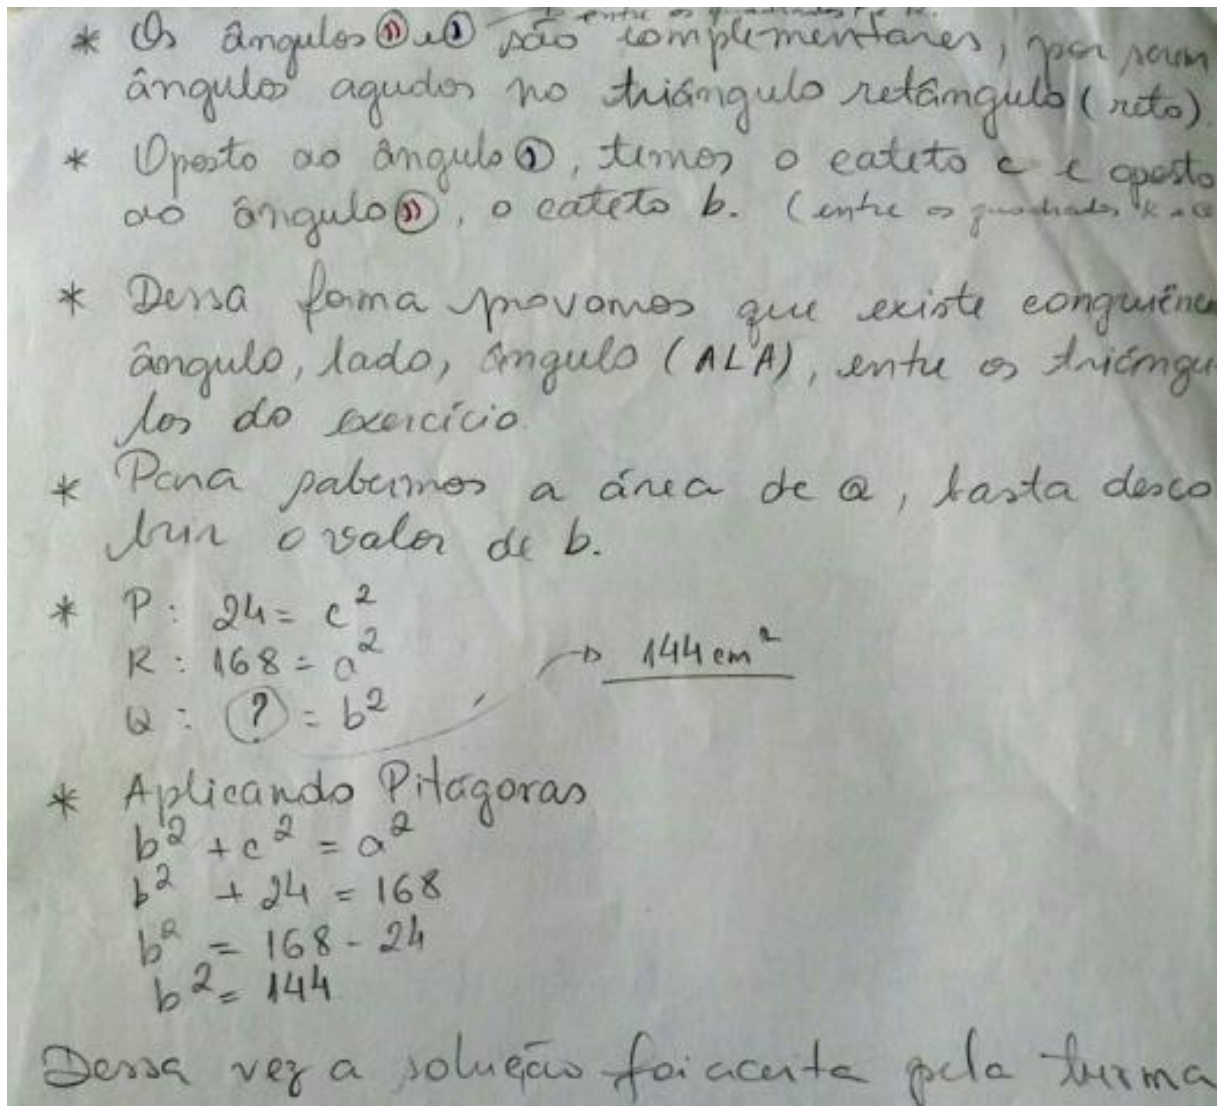 entre os quadrados P e R.
* Os ângulos )) e ) são complementares, por serem
ângulos agudos no triângulo retângulo (reto).
* Oposto ao ângulo ), temos o cateto c e oposto
ao ângulo )), o cateto b. (entre os quadrados R e Q
* Dessa forma provamos que existe congruênc
ângulo, lado, ângulo (ALA), entre os triângu
los do exercício.
* Para sabermos a área de Q, basta desco
brir o valor de b.
* P: 24 = c²
R: 168 = a²
144 cm²
Q: ? = b²
* Aplicando Pitágoras
b² + c² = a²
b² + 24 = 168
b² = 168 - 24
b² = 144
Dessa vez a solução foi aceita pela turma